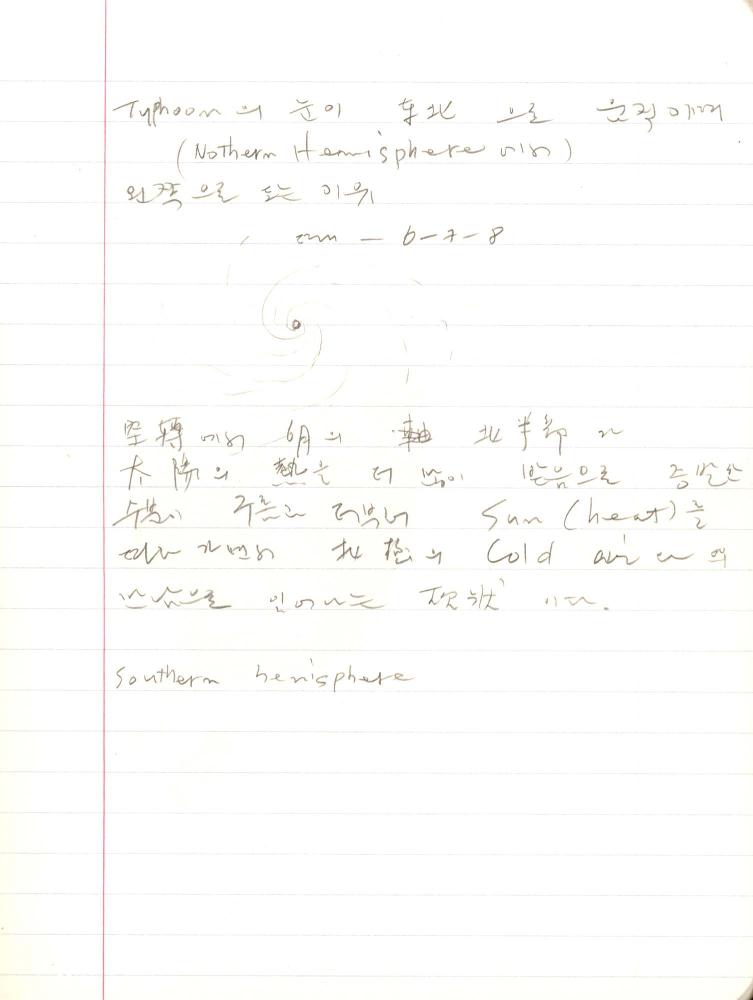 Typhoon의 눈이 東北으로 움직이며
(Nothern Hemisphere에서)
왼쪽으로 도는 이유
6-7-8
에서 6月의 軸 北半部가
太陽의 熱을 더 많이 받음으로 증발한
수분이 구름과 더부러 Sun (heat)를
따라가면서 北極의 Cold air와의
일어나는 현狀이다.
Southern hemisphere